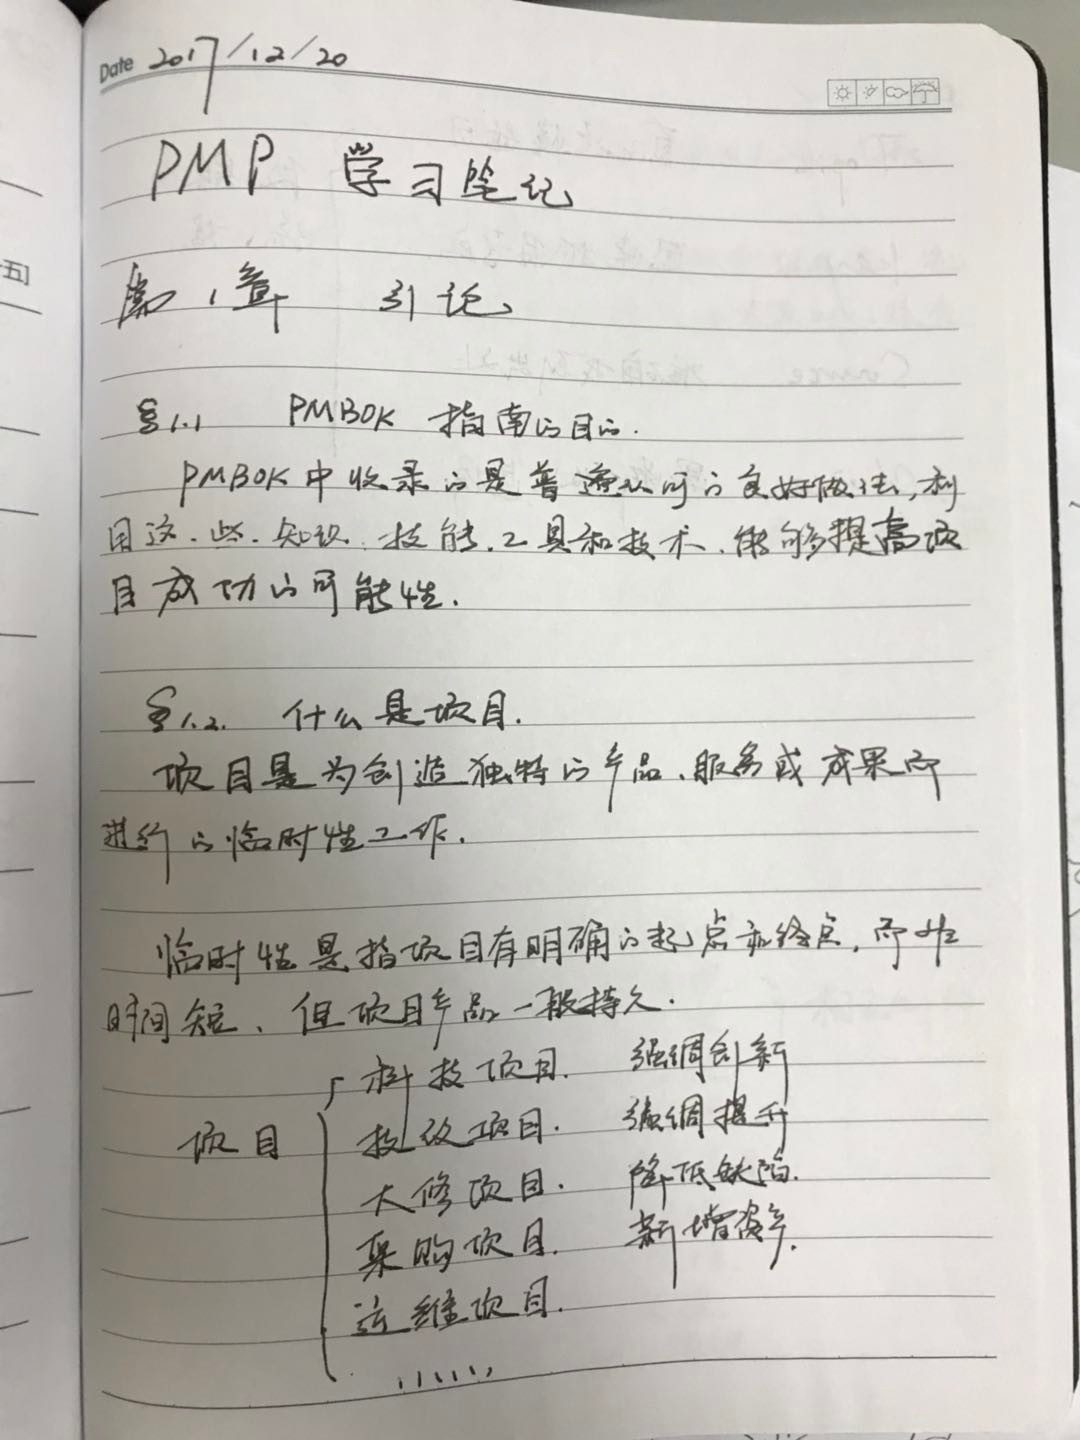 Date 2017/12/20
PMP 学习笔记
第1章 引论
§1.1 PMBOK 指南的目的.
PMBOK中收录的是普遍认可的良好做法,利
用这些知识、技能、工具和技术、能够提高项
目成功的可能性.
§1.2. 什么是项目.
项目是为创造独特的产品、服务或成果而
进行的临时性工作.
临时性是指项目有明确的起点和终点,而非
时间短、但项目产品一般持久.
科技项目. 强调创新
项目
技改项目. 强调提升
大修项目. 降低缺陷.
采购项目. 新增资产.
运维项目.
......
五]